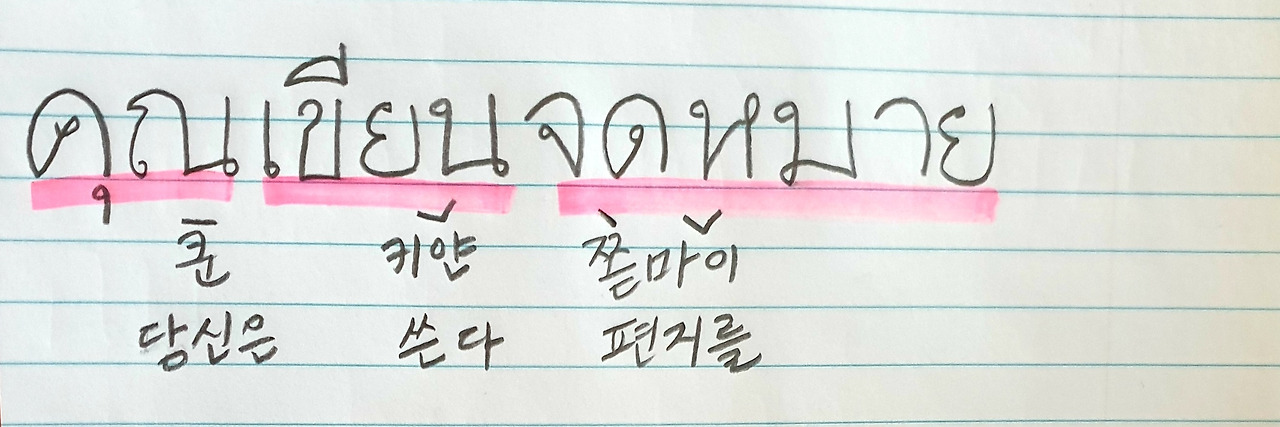 คุณเขียนจดหมาย
쿤 키얀 쫃마이
당신은 쓴다 편지를